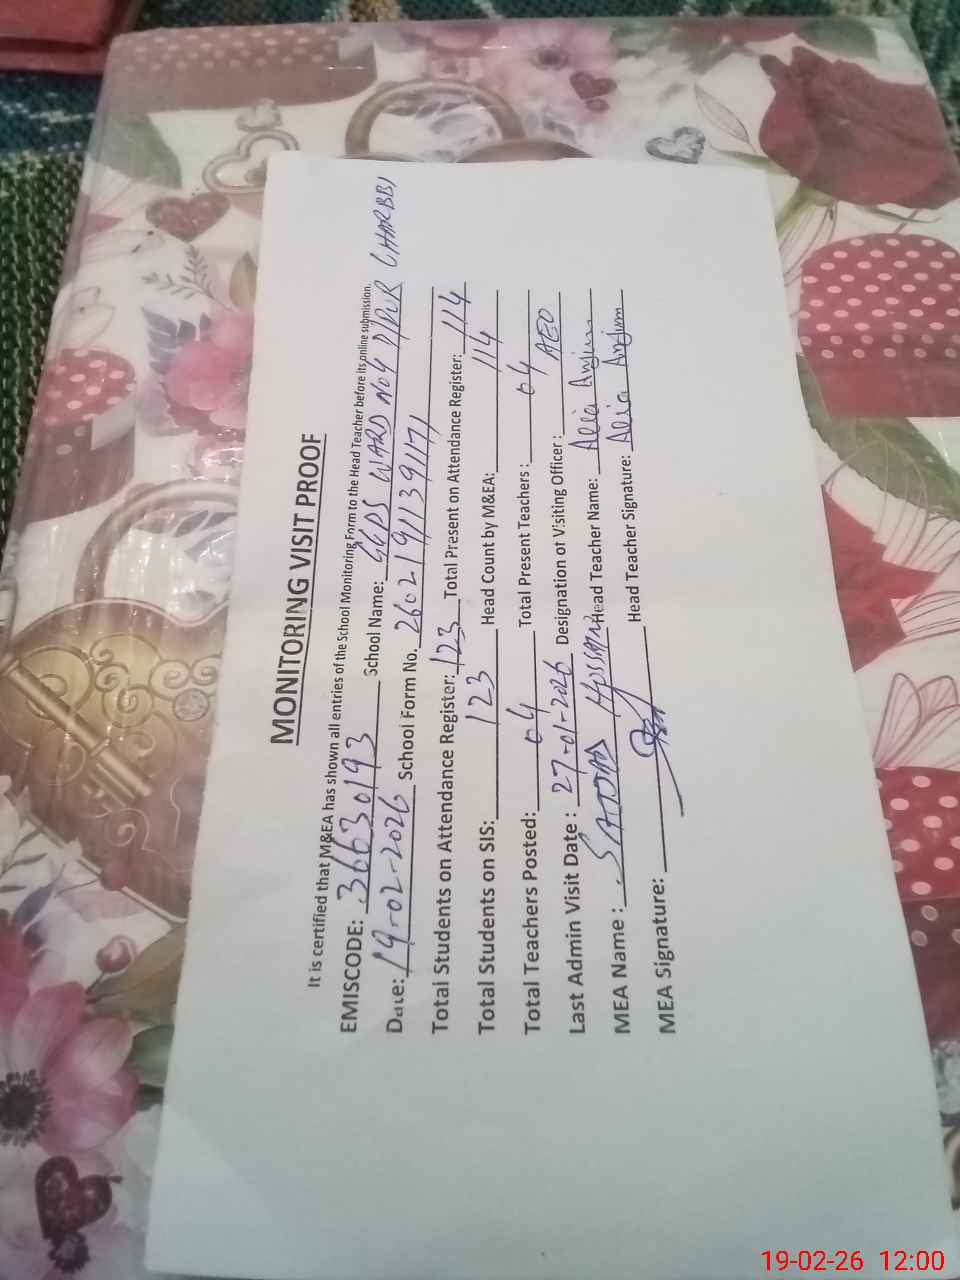 MONITORING VISIT PROOF
It is certified that M&EA has shown all entries of the School Monitoring Form to the Head Teacher before its online submission.
EMISCODE: 36630193 School Name: GGPS WARD NO 4 DPUR GHARBBI
Date: 19-02-2026 School Form No. 26021911391171
Total Students on Attendance Register: 123 Total Present on Attendance Register: 114
Total Students on SIS: 123 Head Count by M&EA: 114
Total Teachers Posted: 04 Total Present Teachers: 04
Last Admin Visit Date: 27-01-2026 Designation of Visiting Officer: AEO
MEA Name: SAJJAD HUSSAIN Head Teacher Name: Alia Anjum
MEA Signature: Head Teacher Signature: Alia Anjum
19-02-26 12:00